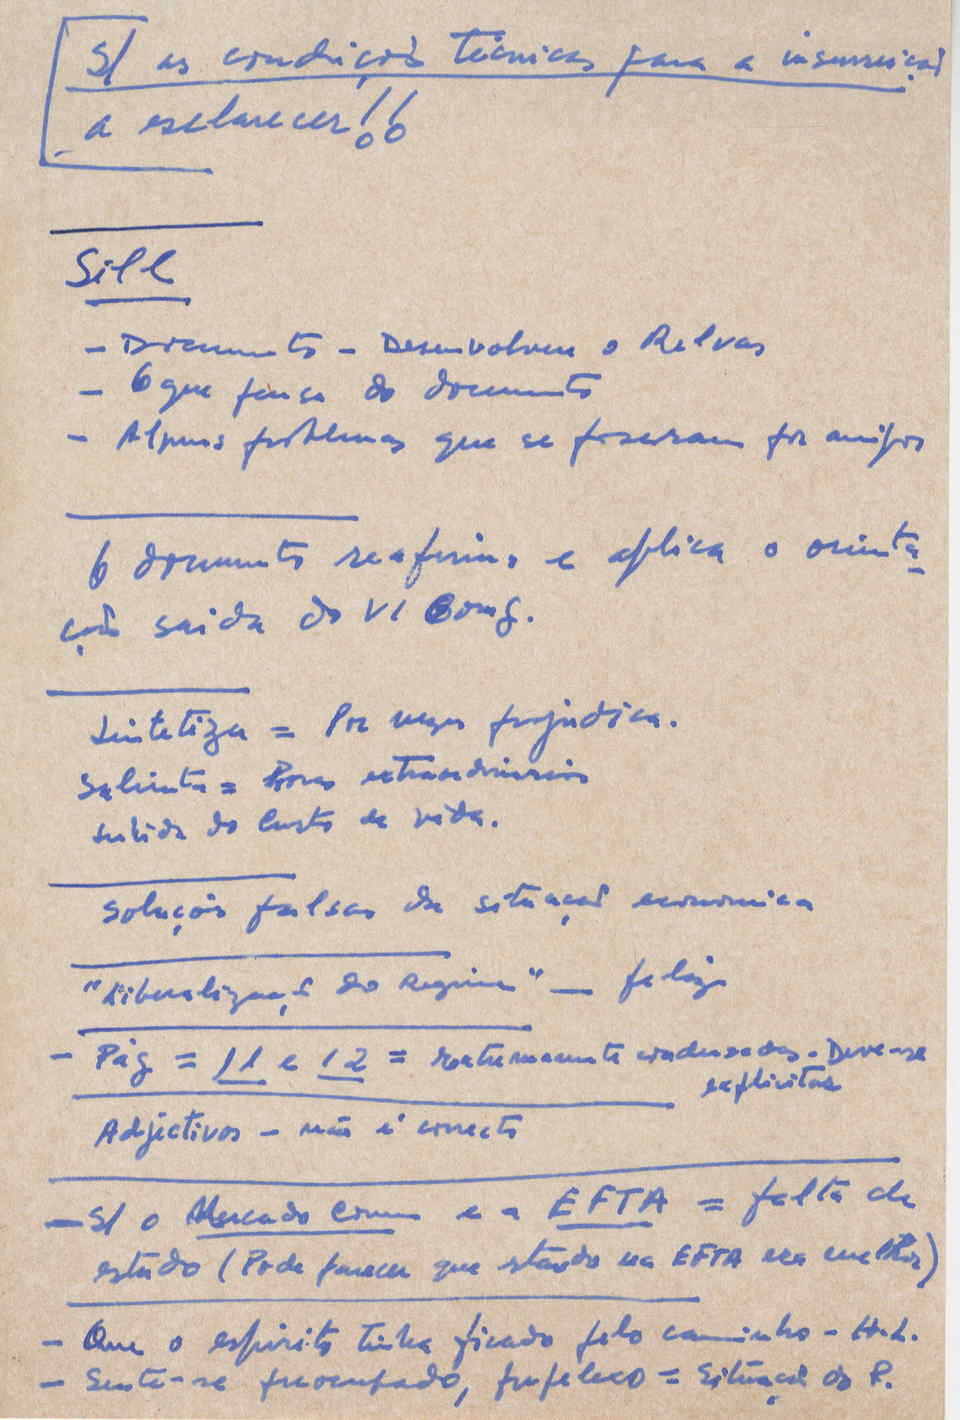 S/ as condições técnicas para a insurreição
a esclarecer!!
Sill
- Documento - Desenvolvem o Relvas
- O que pensa do documento
- Alguns problemas que se puseram por amigos
O documento reafirma e aplica a orienta
ção saida do VI Cong.
Sintetiza = Por vezes prejudica.
Salienta = extraordinário
subida do custo de vida.
soluções falsas da situação economica
"Liberalização do Regime" —
- Pág = 11 e 12 = Extremamente condensadas. Deve-se
explicitar
Adjectivos - não é correcto
- S/ o Mercado Comum e a EFTA = falta de
estudo (Pode parecer que stando na EFTA era melhor)
- Que o espirito tinha ficado pelo caminho - H.L.
- Sente-se preocupado, perplexo = Situação do P.